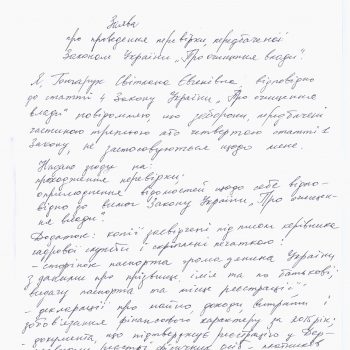 Заява
про проведення перевірки, передбаченої
Законом України „Про очищення влади".
Я, Гончарук Світлана Євгенівна відповідно
до статті 4 Закону України „Про очищення
влади" повідомляю, що заборони, передбачені
частиною третьою або четвертою статті 1
Закону, не застосовуються щодо мене.
Надаю згоду на:
проходження перевірки;
оприлюднення відомостей щодо себе відпо-
відно до вимог Закону України „Про очищен-
ня влади".
Додатки: копії засвідчені підписом керівника
кадрової служби і скріплені печаткою:
- сторінок паспорта громадянина України
з даними про прізвище, ім'я та по батькові,
видачу паспорта та місце реєстрації;
- декларації про майно, доходи, витрати і
зобов'язання фінансового характеру за рік;
- документа, що підтверджує реєстрацію у Дер-
реєстрі фізичних осіб - платників